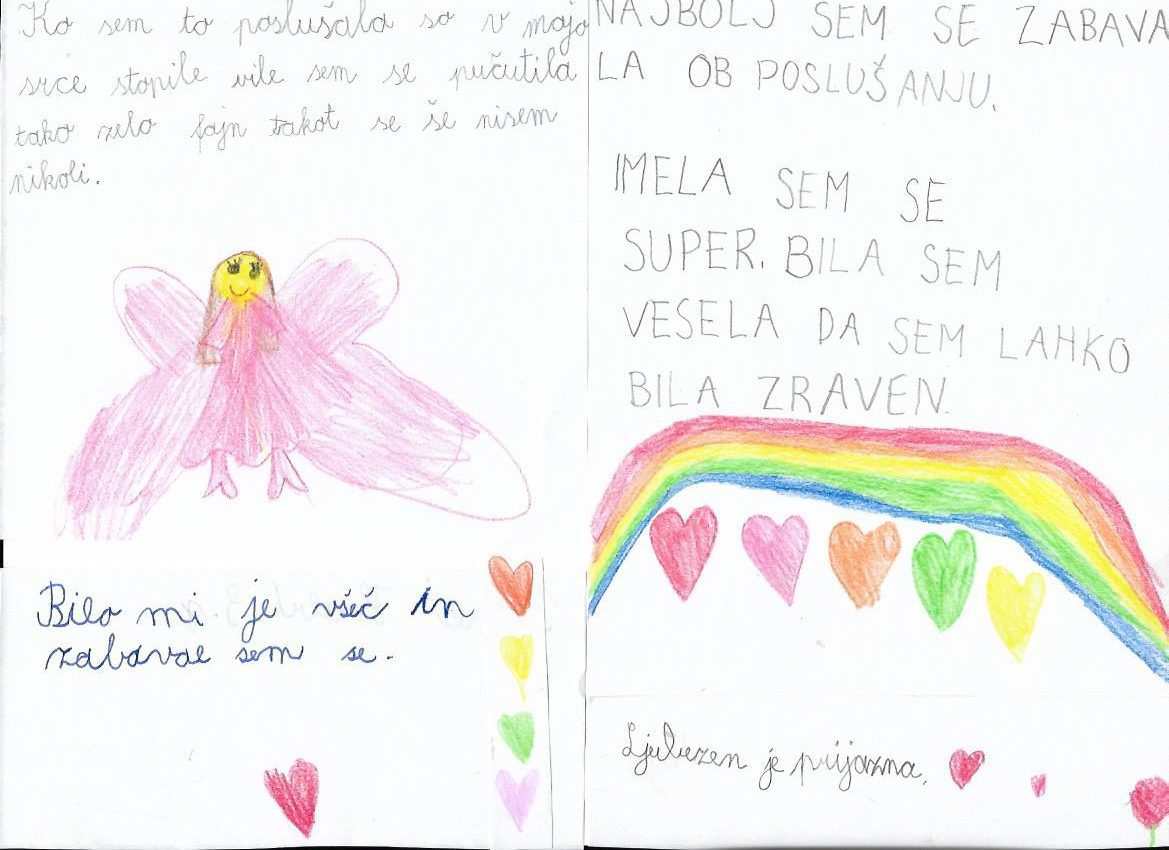 Ko sem to poslušala so v mojo
srce stopile vile sem se pučutila
tako zelo fajn takot se še nisem
nikoli.
Bilo mi je všeč in
zabaval sem se.
NAJBOLJ SEM SE ZABAVA
LA OB POSLUŠANJU.
IMELA SEM SE
SUPER. BILA SEM
VESELA DA SEM LAHKO
BILA ZRAVEN.
Ljubezen je prijazna.